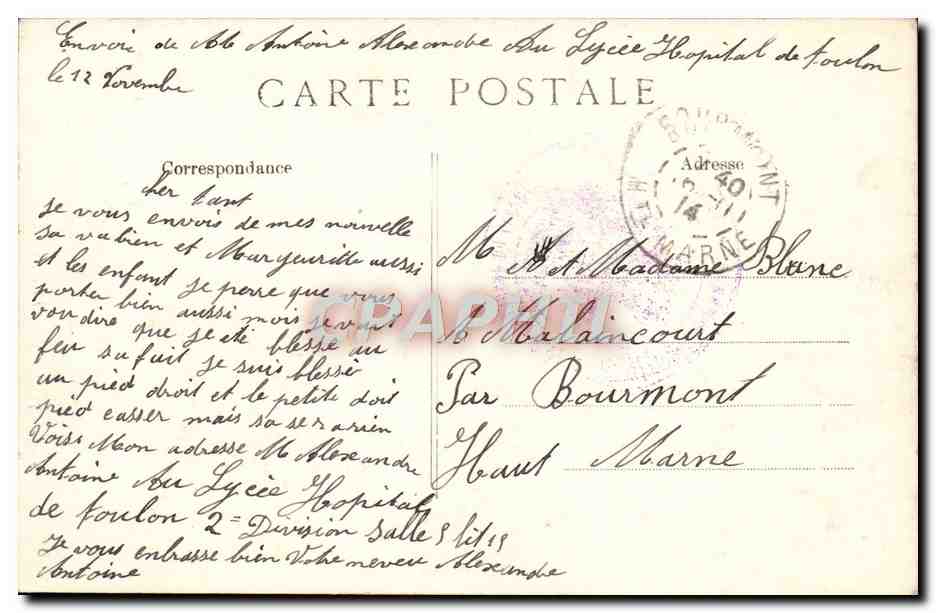 Envoi de M Antoine Alexandre Au Lycée Hopital de toulon
le 12 Novembre
CARTE POSTALE
Correspondance
Adresse
BOURMONT
40
14
HTE MARNE
cher tant
je vous envois de mes nouvelle
sa va bien et Margueritte aussi
et les enfant je perre que vous
porter bien aussi mois je vait
vou dire que je eté blessé au
feu sa fait je suis blessé
au pied droit et le petite doit
pied casser mais sa sera rien
Voisi Mon adresse M Alexandre
Antoine Au Lycée Hopital
de toulon 2= Division Salle 5 lit 19
Je vous enbrasse bien Votre neveu Alexandre
Antoine
M et Madame Blanc
A Malaincourt
Par Bourmont
Haut Marne
CPARAMA